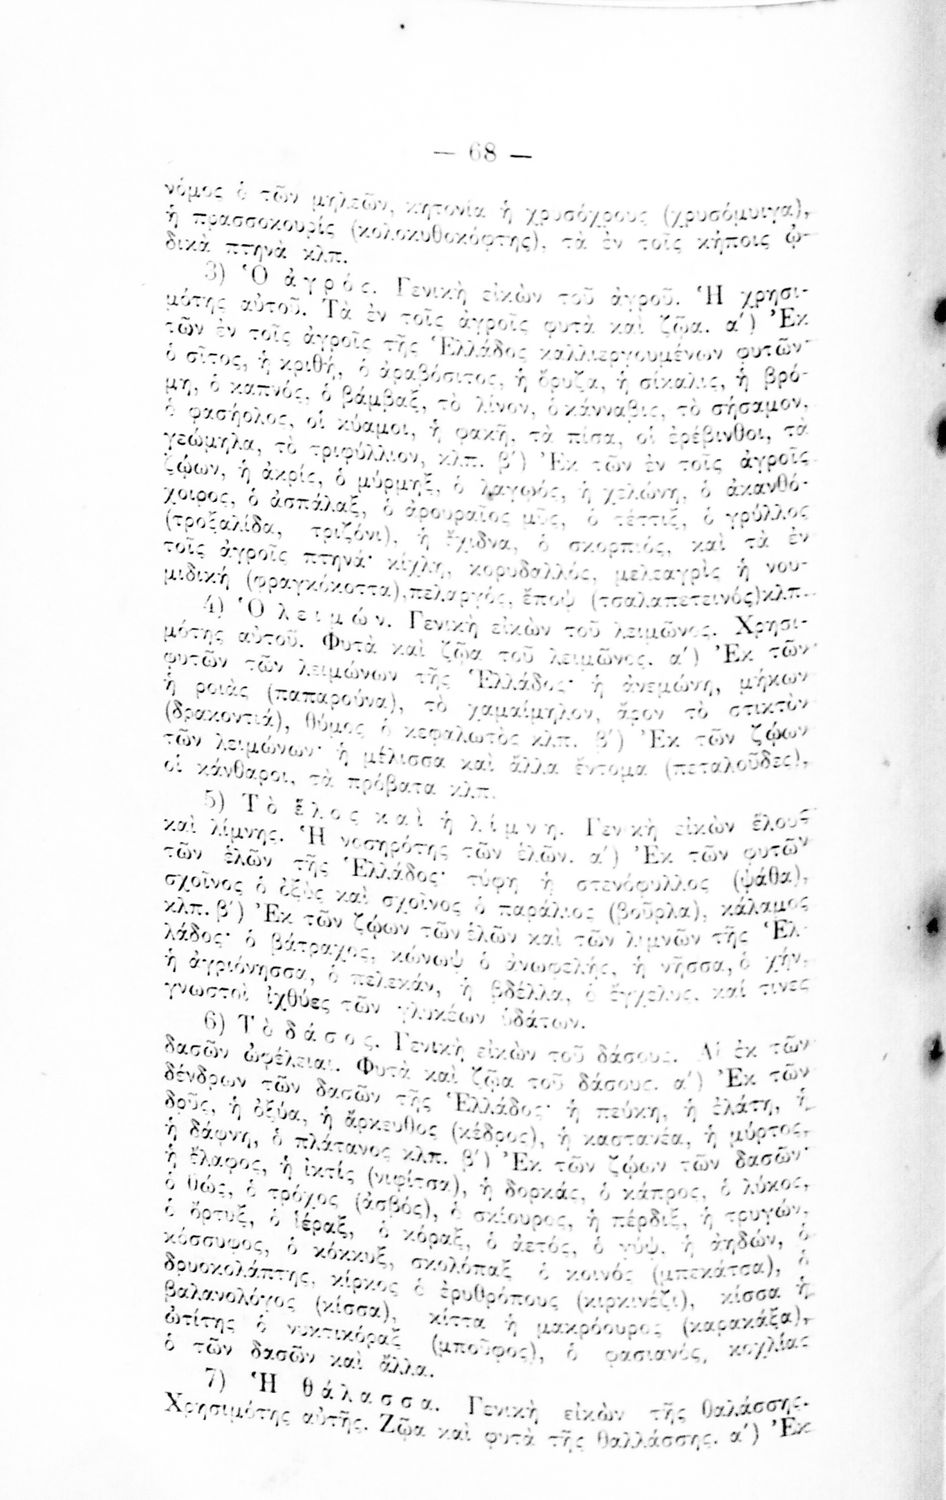 — 68 —
νόμος ὁ τῶν μηλεῶν, κητονία ἡ χρυσόχρους (χρυσόμυιγα),
ἡ πρασσοκουρίς (κολοκυθοκόφτης), τὰ ἐν τοῖς κήποις ᾠ-
δικὰ πτηνὰ κλπ.
3) Ὁ ἀγρός. Γενικὴ εἰκὼν τοῦ ἀγροῦ. Ἡ χρησι-
μότης αὐτοῦ. Τὰ ἐν τοῖς ἀγροῖς φυτὰ καὶ ζῷα. α΄) Ἐκ
τῶν ἐν τοῖς ἀγροῖς τῆς Ἑλλάδος καλλιεργουμένων φυτῶν·
ὁ σῖτος, ἡ κριθή, ὁ ἀραβόσιτος, ἡ ὄρυζα, ἡ σίκαλις, ἡ βρό-
μη, ὁ καπνός, ὁ βάμβαξ, τὸ λίνον, ὁ κάνναβις, τὸ σήσαμον,
ὁ φασήολος, οἱ κύαμοι, ἡ φακῆ, τὰ πίσα, οἱ ἐρέβινθοι, τὰ
γεώμηλα, τὸ τριφύλλιον, κλπ. β΄) Ἐκ τῶν ἐν τοῖς ἀγροῖς
ζῴων, ἡ ἀκρίς, ὁ μύρμηξ, ὁ λαγωός, ἡ χελώνη, ὁ ἀκανθό-
χοιρος, ὁ ἀσπάλαξ, ὁ ἀρουραῖος μῦς, ὁ τέττιξ, ὁ γρύλλος
(τροξαλίδα, τριζόνι), ἡ ἔχιδνα, ὁ σκορπιός, καὶ τὰ ἐν
τοῖς ἀγροῖς πτηνά· κίχλη, κορυδαλλός, μελεαγρὶς ἡ νου-
μιδικὴ (φραγκόκοττα), πελαργός, ἔποψ (τσαλαπετεινός) κλπ.
4) Ὁ λειμών. Γενικὴ εἰκὼν τοῦ λειμῶνος. Χρησι-
μότης αὐτοῦ. Φυτὰ καὶ ζῷα τοῦ λειμῶνος. α΄) Ἐκ τῶν
φυτῶν τῶν λειμώνων τῆς Ἑλλάδος· ἡ ἀνεμώνη, μήκων
ἡ ροιὰς (παπαρούνα), τὸ χαμαίμηλον, ἄρον τὸ στικτὸν
(δρακοντιά), θύμος ὁ κεφαλωτὸς κλπ. β΄) Ἐκ τῶν ζῴων
τῶν λειμώνων· ἡ μέλισσα καὶ ἄλλα ἔντομα (πεταλοῦδες),
οἱ κάνθαροι, τὰ πρόβατα κλπ.
5) Τὸ ἕλος καὶ ἡ λίμνη. Γενικὴ εἰκὼν ἕλους
καὶ λίμνης. Ἡ νοσηρότης τῶν ἑλῶν. α΄) Ἐκ τῶν φυτῶν
τῶν ἑλῶν τῆς Ἑλλάδος· τύφη ἡ στενόφυλλος (ψάθα),
σχοῖνος ὁ ὀξὺς καὶ σχοῖνος ὁ παράλιος (βοῦρλα), κάλαμος
κλπ. β΄) Ἐκ τῶν ζῴων τῶν ἑλῶν καὶ τῶν λιμνῶν τῆς Ἑλ-
λάδος· ὁ βάτραχος, κώνωψ ὁ ἀνωφελής, ἡ νῆσσα, ὁ χήν,
ἡ ἀγριόνησσα, ὁ πελεκάν, ἡ βδέλλα, ὁ ἔγχελυς, καί τινες
γνωστοὶ ἰχθύες τῶν γλυκέων ὑδάτων.
6) Τὸ δάσος. Γενικὴ εἰκὼν τοῦ δάσους. Αἱ ἐκ τῶν
δασῶν ὠφέλειαι. Φυτὰ καὶ ζῷα τοῦ δάσους. α΄) Ἐκ τῶν
δένδρων τῶν δασῶν τῆς Ἑλλάδος· ἡ πεύκη, ἡ ἐλάτη, ἡ
δρῦς, ἡ ὀξύα, ἡ ἄρκευθος (κέδρος), ἡ καστανέα, ἡ μύρτος,
ἡ δάφνη, ὁ πλάτανος κλπ. β΄) Ἐκ τῶν ζῴων τῶν δασῶν·
ἡ ἔλαφος, ἡ ἰκτὶς (νιφίτσα), ἡ δορκάς, ὁ κάπρος, ὁ λύκος,
ὁ θώς, ὁ τρόχος (ἀσβός), ὁ σκίουρος, ἡ πέρδιξ, ἡ τρυγών,
ὁ ὄρτυξ, ὁ ἱέραξ, ὁ κόραξ, ὁ ἀετός, ὁ γύψ, ἡ ἀηδών, ὁ
κόσσυφος, ὁ κόκκυξ, σκολόπαξ ὁ κοινός (μπεκάτσα), ὁ
δρυοκολάπτης, κίρκος ὁ ἐρυθρόπους (κιρκινέζι), κίσσα ἡ
βαλανολόγος (κίσσα), κίττα ἡ μακρόουρος (καρακάξα),
ὠτίτης ὁ νυκτικόραξ (μποῦφος), ὁ φασιανός, κοχλίας
ὁ τῶν δασῶν καὶ ἄλλα.
7) Ἡ θάλασσα. Γενικὴ εἰκὼν τῆς θαλάσσης.
Χρησιμότης αὐτῆς. Ζῷα καὶ φυτὰ τῆς θαλλάσσης. α΄) Ἐκ